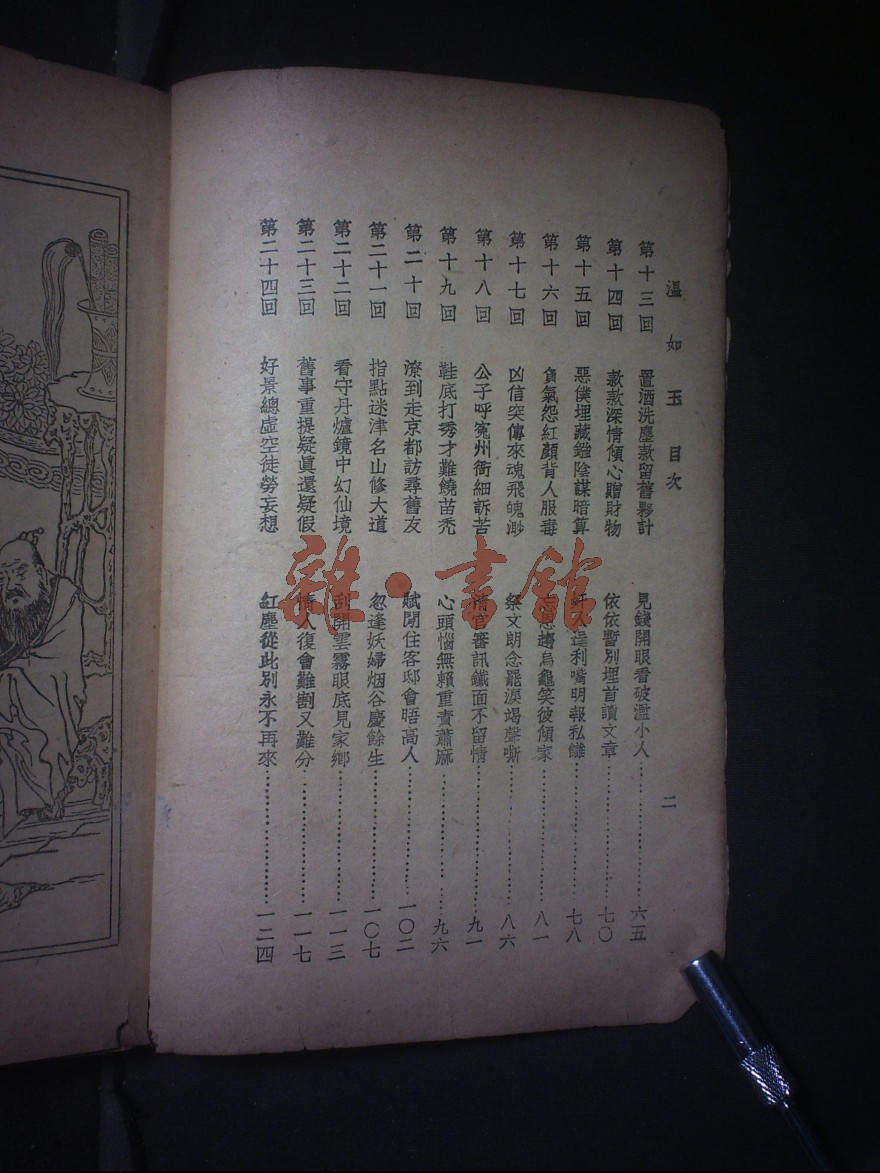 溫如玉 目次 二
第十三回 置酒洗塵款留舊夥計 見錢開眼看破濫小人 六五
第十四回 款款深情傾心贈財物 依依暫別埋首讀文章 七〇
第十五回 惡僕埋藏鏹陰謀暗算 奸人逞利嘴明報私讎 七八
第十六回 負氣怨紅顏背人服毒 烏龜笑彼傾家 八一
第十七回 凶信突傳來魂飛魄渺 祭文朗念罷淚竭聲嘶 八六
第十八回 公子呼冤州衙細訴苦 情官審訊鐵面不留情 九一
第十九回 鞋底打秀才難饒苗禿 心頭惱無賴重責蕭麻 九六
第二十回 潦到走京都訪尋舊友 賦閒住客邸會晤高人 一〇二
第二十一回 指點迷津名山修大道 忽逢妖婦烟谷慶餘生 一〇七
第二十二回 看守丹爐鏡中幻仙境 刮開雲霧眼底見家鄉 一一三
第二十三回 舊事重提疑眞還疑假 情人復會難割又難分 一一七
第二十四回 好景總虛空徒勞妄想 紅塵從此別永不再來 一二四
雜·書館